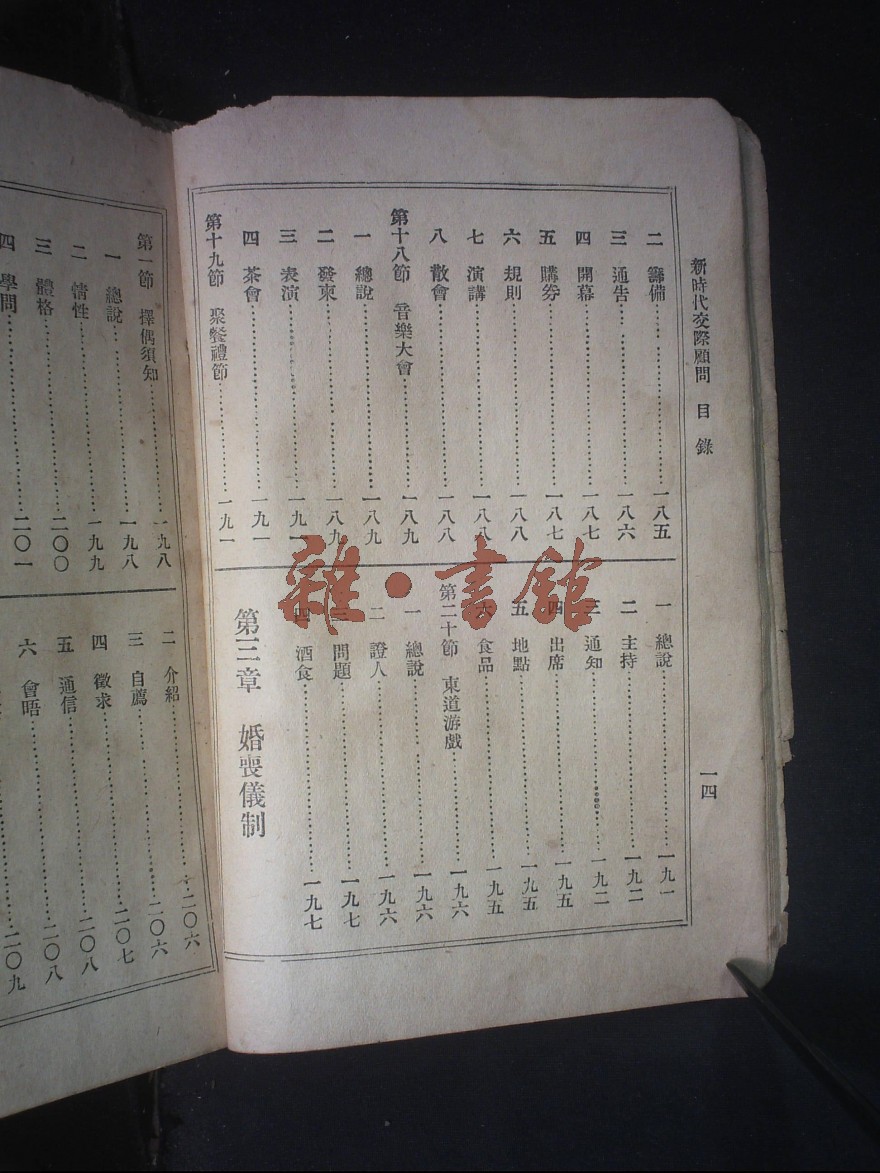 新時代交際顧問 目錄
一四
二 籌備 一八五
三 通告 一八六
四 開幕 一八七
五 購券 一八七
六 規則 一八八
七 演講 一八八
八 散會 一八八
第十八節 音樂大會 一八九
一 總說 一八九
二 發柬 一八九
三 表演 一九一
四 茶會 一九一
第十九節 聚餐禮節 一九一
一 總說 一九一
二 主持 一九二
三 通知 一九二
四 出席 一九五
五 地點 一九五
六 食品 一九五
第二十節 東道游戲 一九六
一 總說 一九六
二 證人 一九六
三 問題 一九七
四 酒食 一九七
第三章 婚喪儀制
第一節 擇偶須知 一九八
一 總說 一九八
二 情性 一九九
三 體格 二〇〇
四 學問 二〇一
二 介紹 二〇六
三 自薦 二〇六
四 徵求 二〇七
五 通信 二〇八
六 會晤 二〇八
二〇九
雜·書館